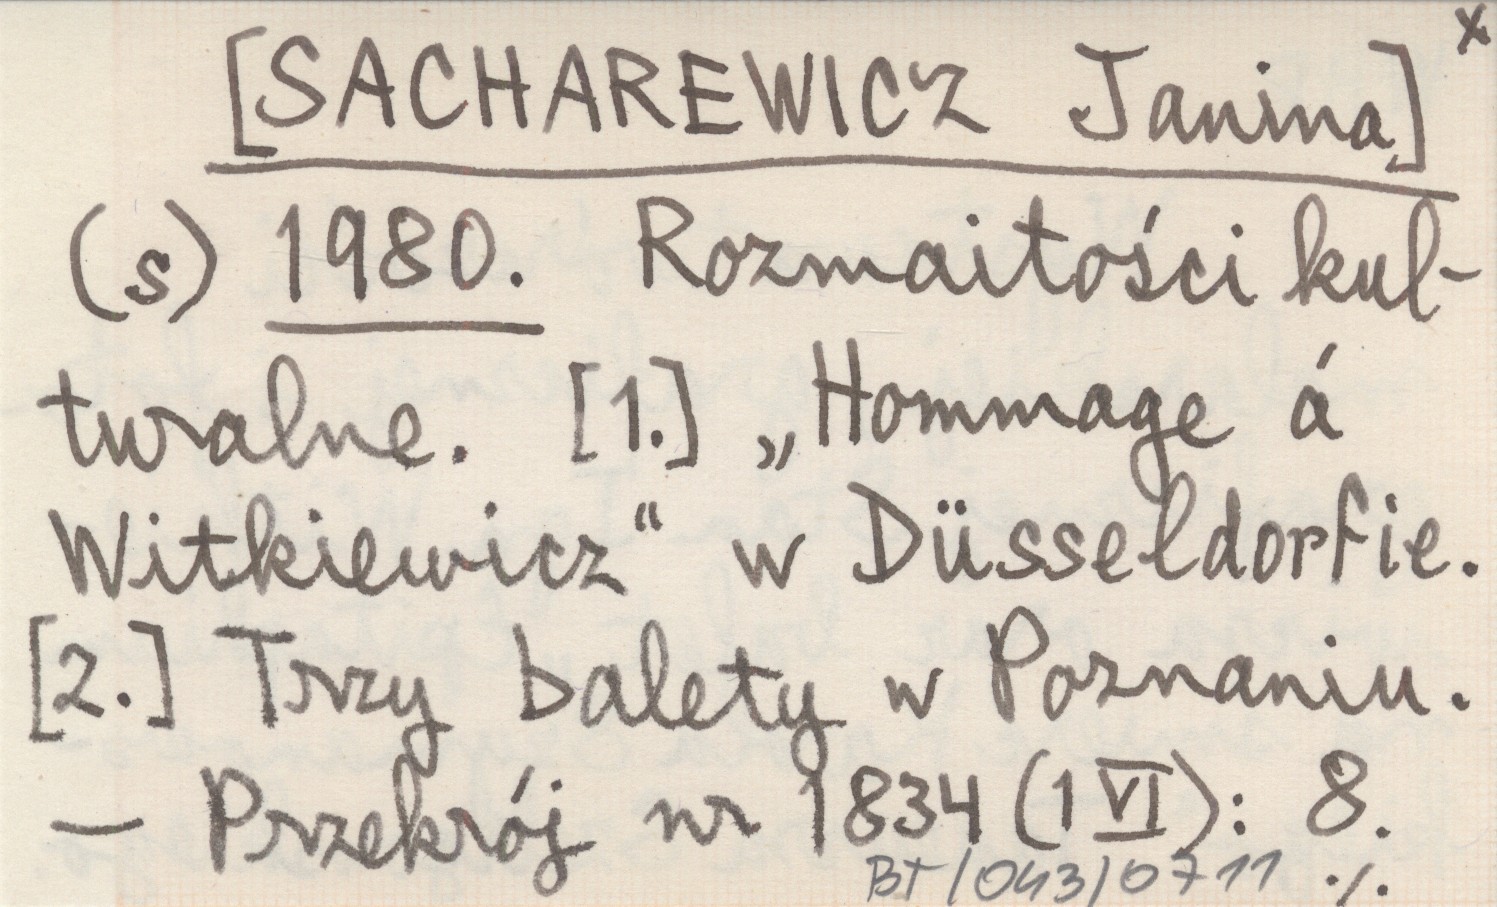 [SACHAREWICZ Janina] x
(s) 1980. Rozmaitości kul-
turalne. [1.] „Hommage á
Witkiewicz“ w Düsseldorfie.
[2.] Trzy balety w Poznaniu.
— Przekrój nr 1834 (1 VI): 8.
BT/043/0711 ./.